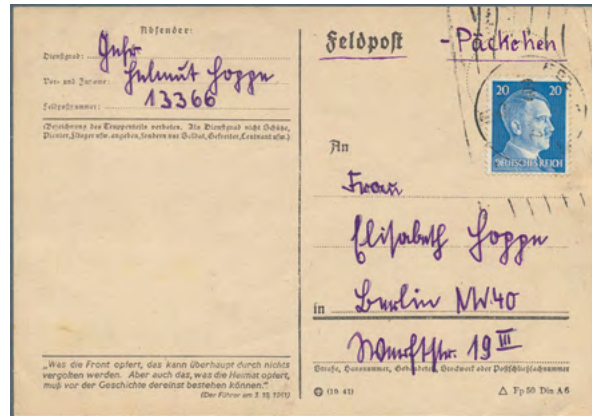 Absender:
Dienstgrad: Gefr
Vor- und Zuname: Helmut Hoppe
Feldpostnummer: 13366
(Bezeichnung des Truppenteils verboten. Als Dienstgrad nicht Schütze,
Pionier, Flieger usw. angeben, sondern nur Soldat, Gefreiter, Leutnant usw.)
„Was die Front opfert, das kann überhaupt durch nichts
vergolten werden. Aber auch das, was die Heimat opfert,
muß vor der Geschichte dereinst bestehen können."
(Der Führer am 3. 10. 1941)
Feldpost - Päckchen
20 20
DEUTSCHES REICH
An
Frau
Elisabeth Hoppe
in Berlin NW 40
19 III
Straße, Hausnummer, Gebäudeteil, Stockwerk oder Postschließfachnummer
Fp 50 Din A 6